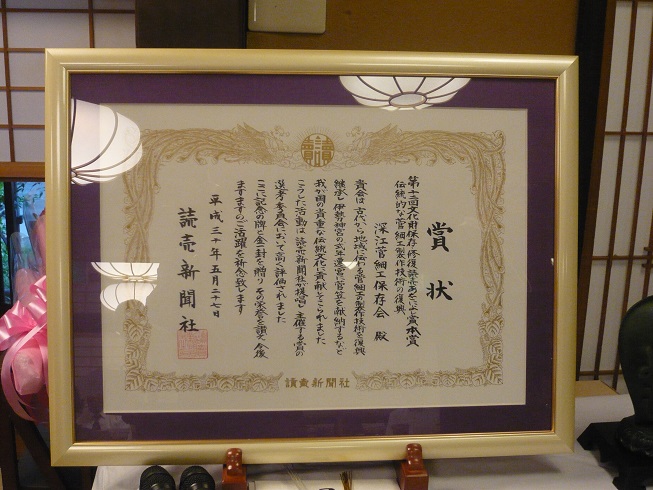 賞状
第十二回文化財保存・修復読売あをによし賞本賞
伝統的な菅細工製作技術の復興
深江菅細工保存会 殿
貴会は古代から地域に伝わる菅細工の製作技術を復興
継承し伊勢神宮の式年遷宮に菅笠を献納するなど
我が国の貴重な伝統文化に貢献してこられました
こうした活動は読売新聞社が提唱し主催する賞の
選考委員会において高く評価されました
ここに記念の牌と金一封を贈りその栄誉を讃え今後
ますますのご活躍を祈念致します
平成三十年五月二十七日
読売新聞社
讀賣新聞社